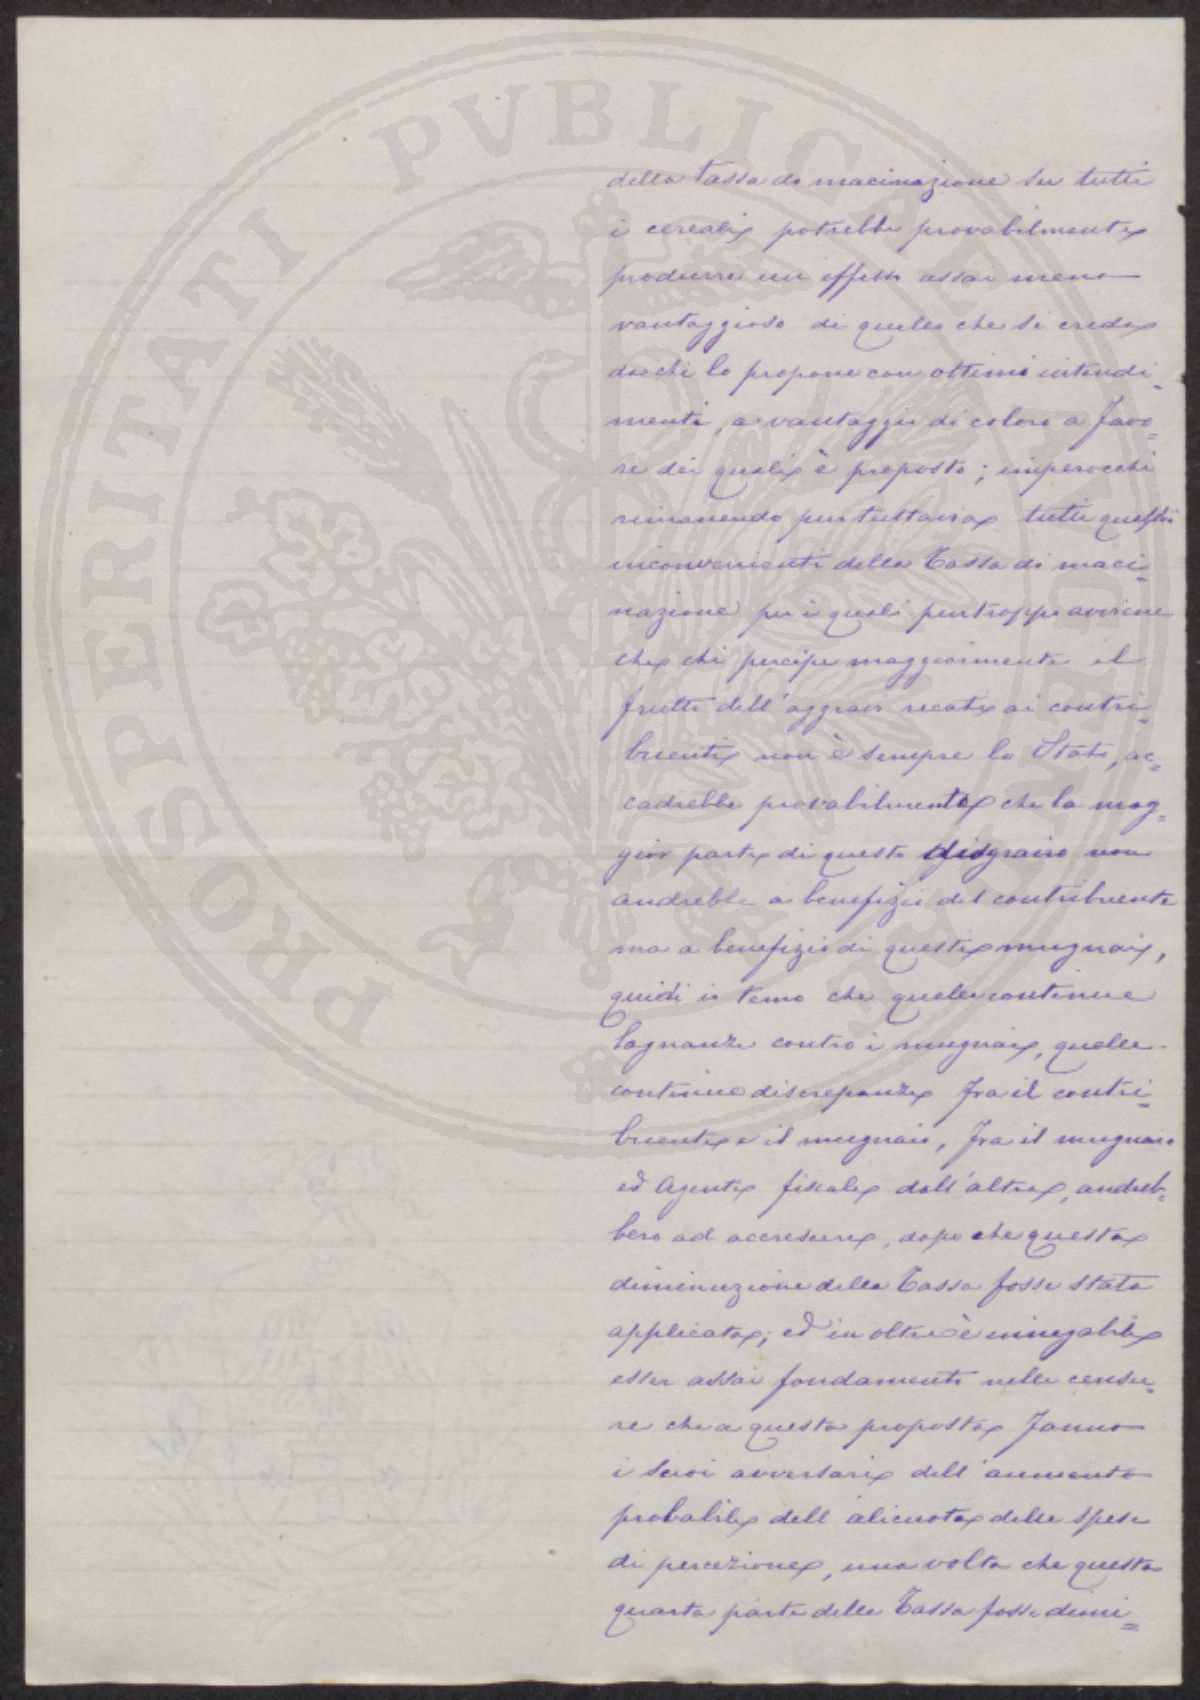 PROSPERITATI PVBLICAE
della Tassa di macinazione su tutti
i cereali potrebbe provabilmente
produrre un effetto assai meno
vantaggioso di quello che si crede
da chi lo propone con ottimi intendi=
menti, a vantaggio di coloro a favo=
re dei quali è proposto; imperocchè
rimanendo pur tuttavia tutti questi
inconvenienti della Tassa di maci=
nazione per i quali purtroppo avviene
che chi percipe maggiormente il
frutto dell'aggravio recato ai contri=
buenti non è sempre lo Stato, ac=
cadrebbe provabilmente che la mag=
gior parte di questo disgravio non
andrebbe a benefizio del contribuente
ma a benefizio di questi mugnai,
quidi io temo che quelle continue
lagnanze contro i mugnai, quelle
continue discrepanze fra il contri=
buente e il mugnaio, fra il mugnaio
ed Agente fiscale dall'altra, andreb=
bero ad accrescere, dopo che questa
diminuzione della Tassa fosse stata
applicata; ed in oltre è innegabile
esser assai fondamento nelle censu=
re che a questa proposta fanno
i suoi avversari dell'aumento
probabile dell'alicuota delle spese
di percezione, una volta che questa
quarta parte della Tassa fosse dimi=